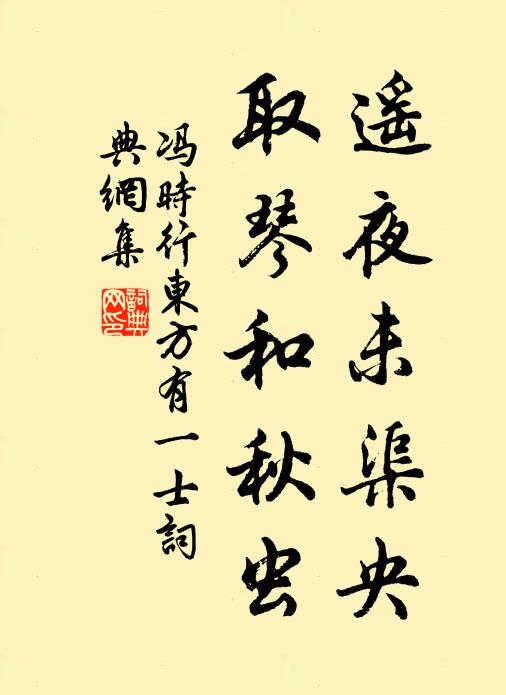 遥夜未渠央
取琴和秋虫
冯時行東方有一士詞
典網集
詞典网印